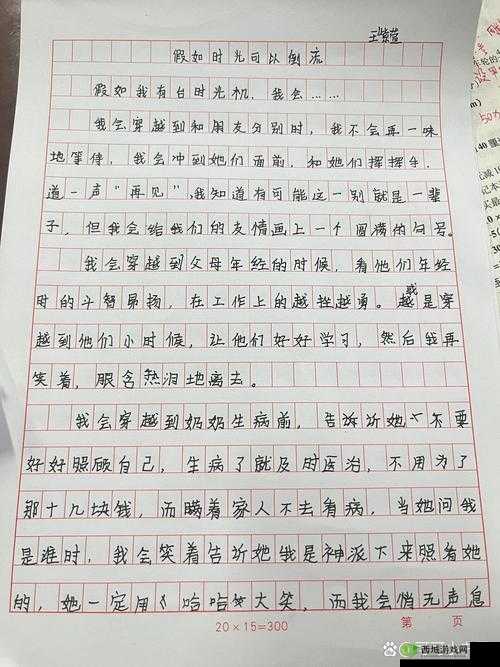 王紫萱
假如时光可以倒流
假如我有台时光机，我会……
我会穿越到和朋友分别时，我不会再一味
地等待，我会冲到她们面前，和她们挥挥手，
道一声“再见”，我知道有可能这一别就是一辈
子，但我会给我们的友情画上一个圆满的句号。
我会穿越到父母年经的时候，看他们年经
时的斗智昂扬，在工作上的越挫越勇。或是穿
越到他们小时候，让他们好好学习，然后我再
笑着，眼含热泪地离去。
我会穿越到奶奶生病前，告诉她不要
好好照顾自己，生病了就及时医治，不用为了
那十几块钱，而瞒着家人不去看病，当她问我
是谁时，我会笑着告诉她我是神派下来照看她
的，她一定用哈哈大笑，而我会悄无声息
20×15=300
第 页
西城游戏网